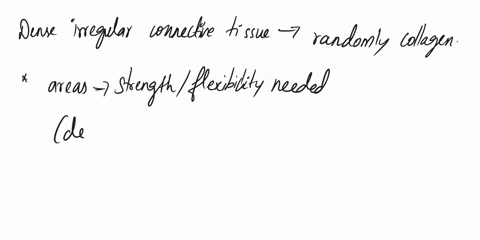 Dense irregular connective tissue → randomly collagen.
* areas → strength/flexibility needed
(de